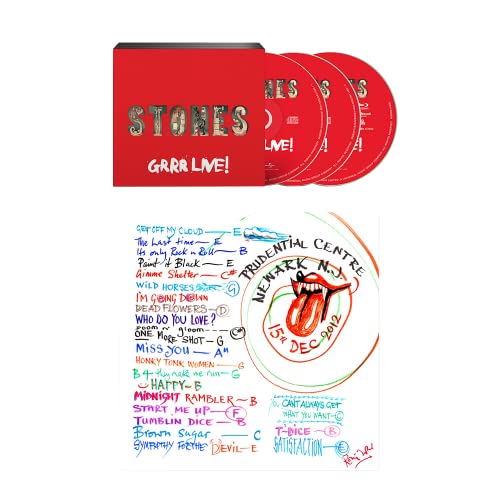 STONES
GRRR LIVE!
GET OFF MY CLOUD — E
The Last time — E
Its only Rock n Roll — B
Paint it Black — E
Gimme Shelter — C#
WILD HORSES G
I'M GOING DOWN
DEAD FLOWERS — D
WHO DO YOU LOVE?
DOOM n' gloom
ONE MORE SHOT — G
MISS YOU — Am
HONKY TONK WOMEN — G
B4 they make me run — G
HAPPY — B
MIDNIGHT RAMBLER — B
START ME UP — F
TUMBLIN DICE — B
Brown Sugar — C
SYMPATHY FOR THE DEVIL — E
PRUDENTIAL CENTRE
NEWARK N.J.
15th DEC 2012
YOU CANT ALWAYS GET
WHAT YOU WANT — C
T-DICE — B
SATISFACTION — E